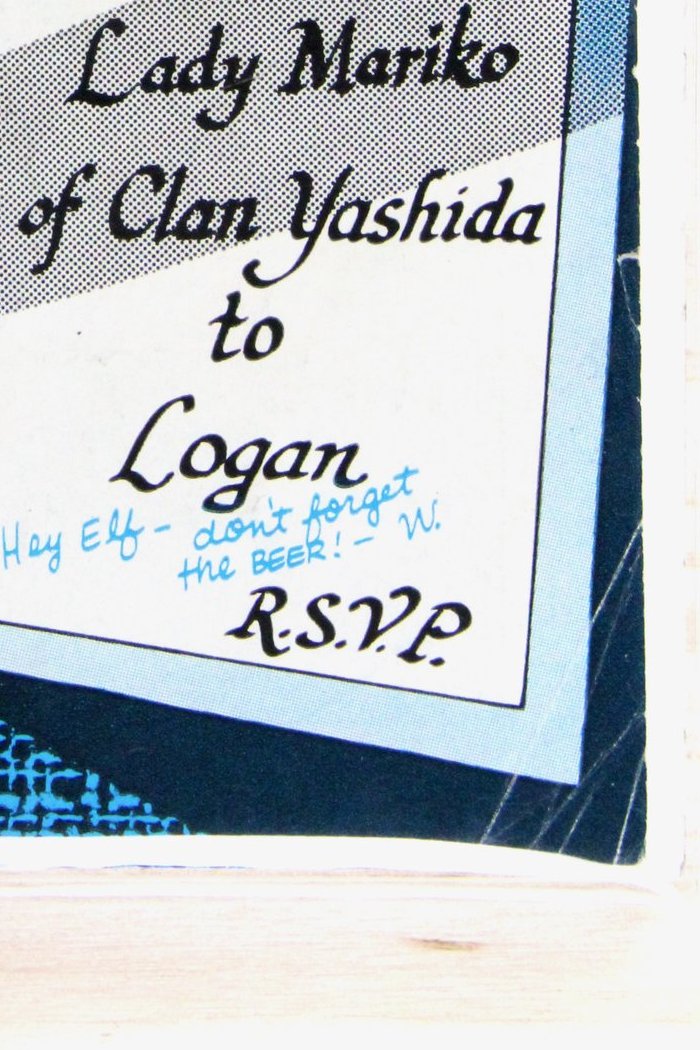 Lady Mariko
of Clan Yashida
to
Logan
Hey Elf - don't forget
the BEER! - W.
R.S.V.P.